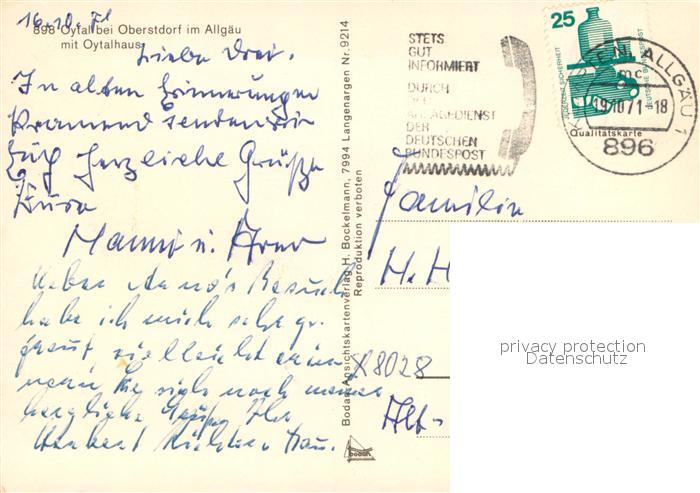 16.10.71
898 Oytal bei Oberstdorf im Allgäu
mit Oytalhaus
Liebe Drei.
In alten Erinnerungen
kramend senden wir
Euch herzliche Grüße
Eure
Hanni u. Arno
Ueber Arno's Besuch
habe ich mich sehr ge-
freut, vielleicht erin
nern Sie sich noch meiner
herzliche Grüße Ihr
Herbert u. Frau.
Bodan-Ansichtskartenverlag H. Bockelmann, 7994 Langenargen Nr. 9214
Reproduktion verboten
bodan
STETS
GUT
INFORMIERT
DURCH
DEN
DIENST
DER
DEUTSCHEN
BUNDESPOST
25
JEDERZEIT SICHERHEIT
DEUTSCHE BUNDESPOST
KEMPTEN, ALLGÄU 1
mc
19.10.71-18
896
Qualitätskarte
Familie
H. H
8028
Alt-
privacy protection
Datenschutz